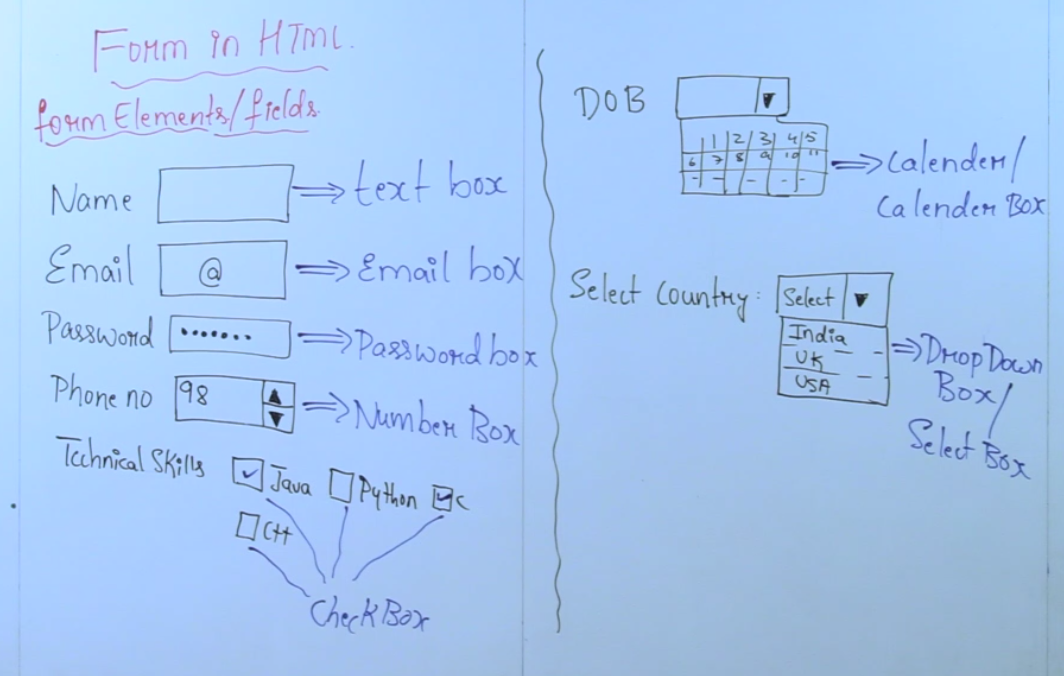 Form in HTML.
form Elements/fields
Name ⇒ text box
Email @ ⇒ Email box
Password ....... ⇒ Password box
Phone no 98 ▲ ▼ ⇒ Number Box
Technical Skills Java Python C
C++
Check Box
DOB ▼
1 2 3 4 5
6 7 8 9 10 11
- - - - -
⇒ Calender/
Calender Box
Select Country: Select ▼
India
UK
USA
⇒ Drop Down
Box/
Select Box